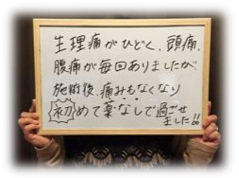 生理痛がひどく、頭痛、
腰痛が毎回ありましたが
施術後、痛みもなくなり
初めて薬なしで過ごせ
ました!!